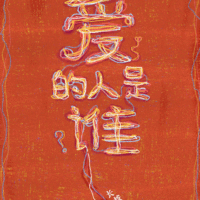 爱
的人是
谁?